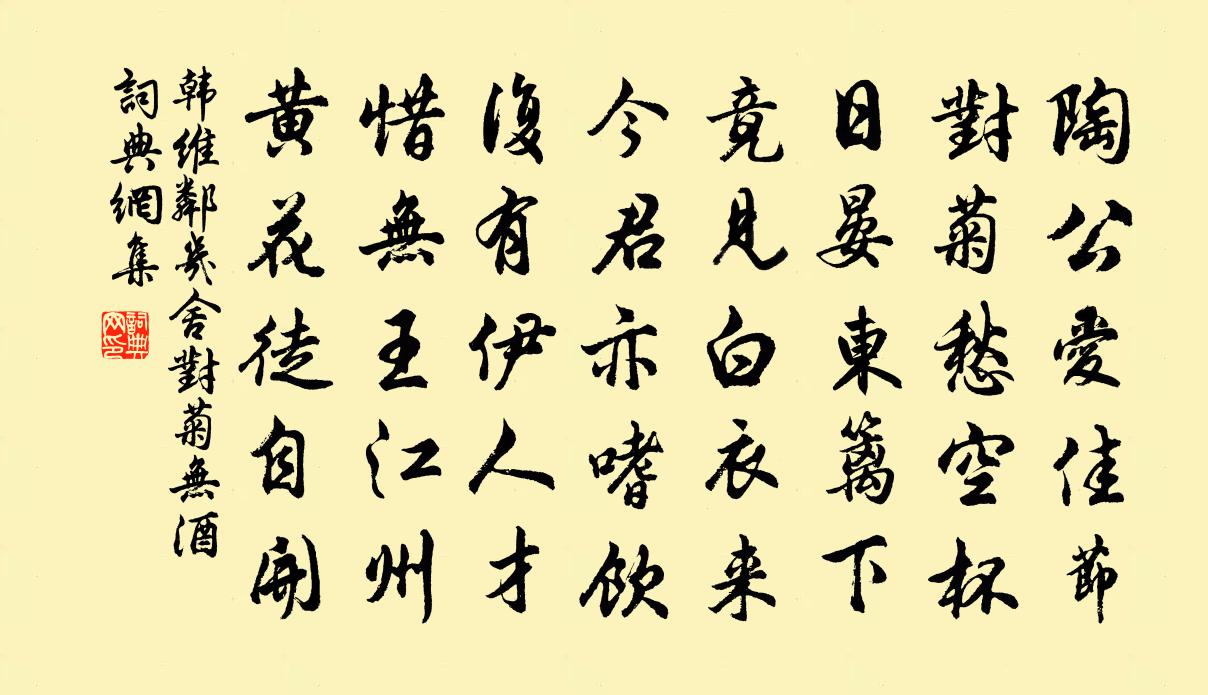 陶公愛佳節
對菊愁空杯
日晏東籬下
竟見白衣来
今君亦嗜飲
復有伊人才
惜無王江州
黄花徒自開
韩維鄰幾舍對菊無酒
詞典網集
詞典网印